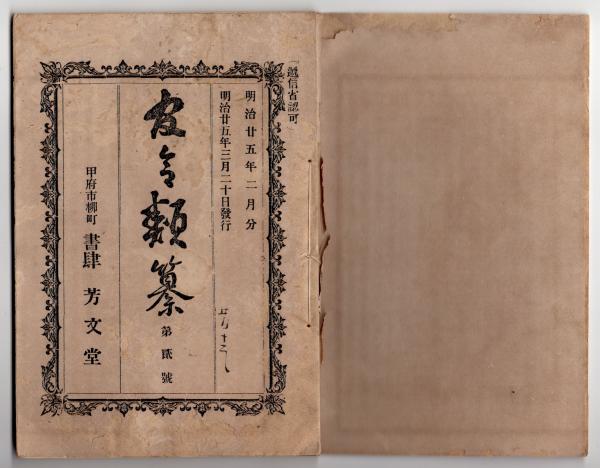 逓信省認可
明治廿五年二月分
明治廿五年三月二十日發行
令類纂
第貳號
甲府市柳町 書肆 芳文堂